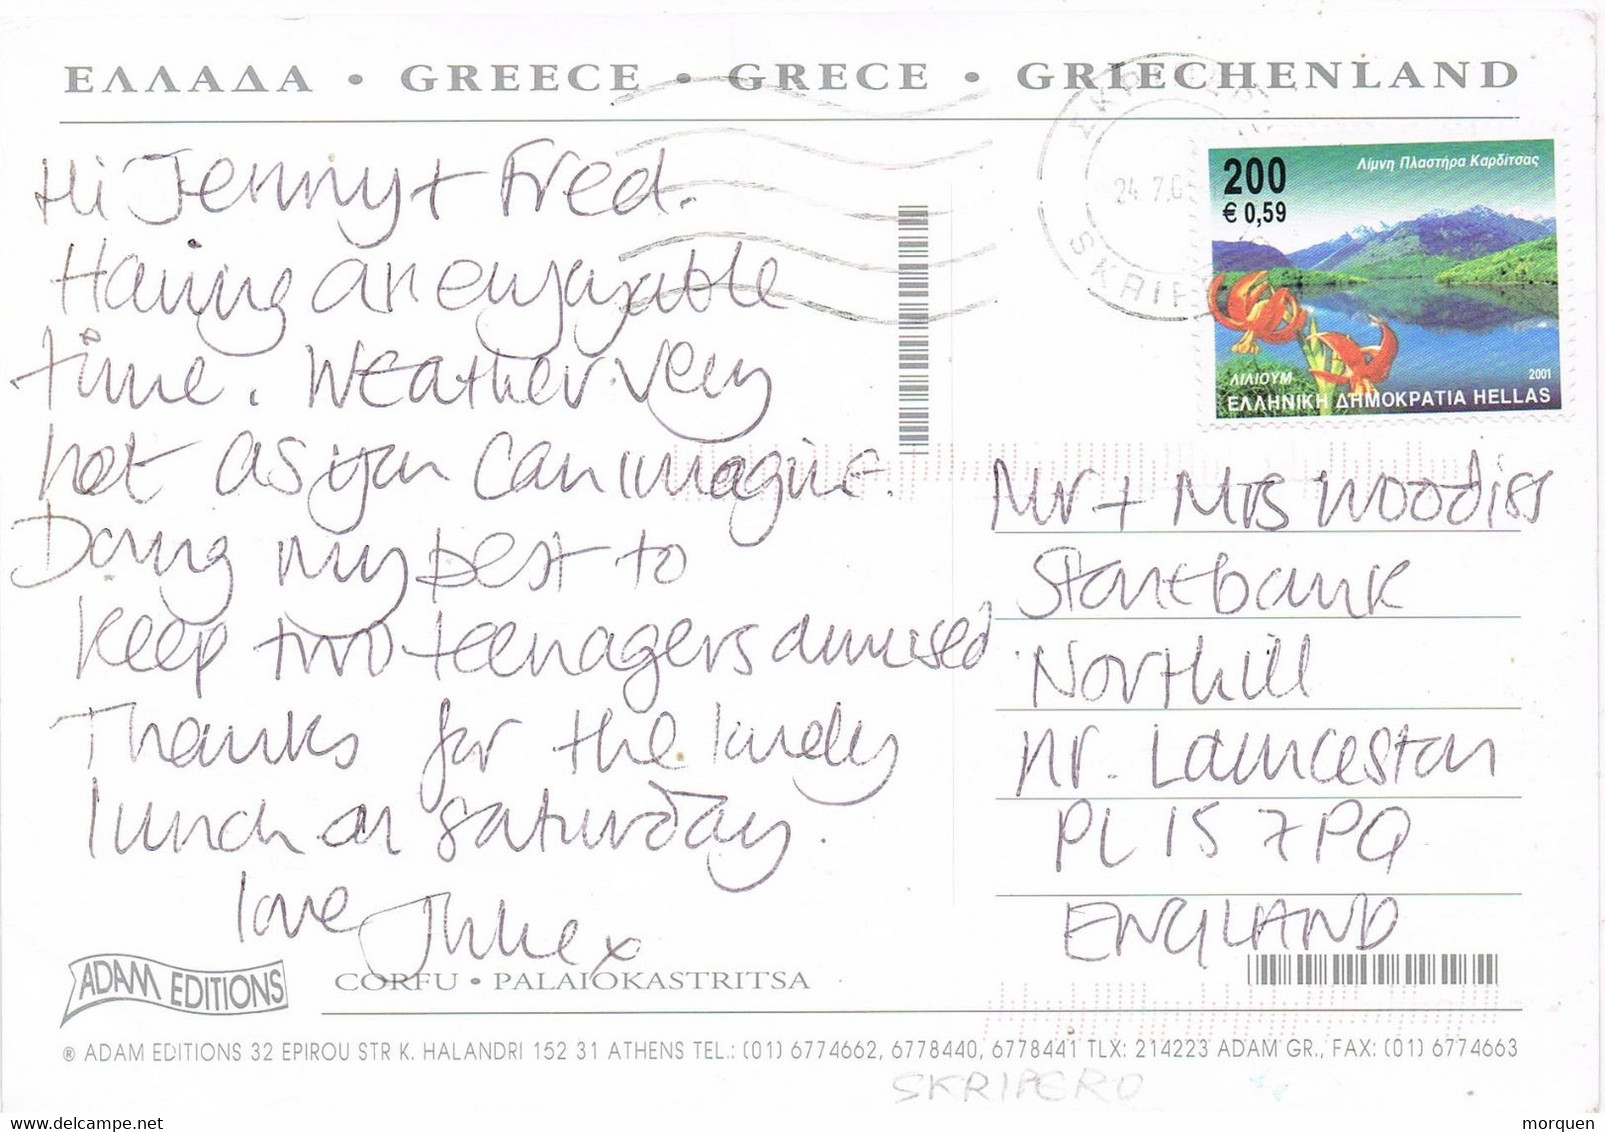 ΕΛΛΑΔΑ • GREECE • GRECE • GRIECHENLAND
Hi Jenny + Fred.
Having an enjoyable
time. Weather very
hot as you can imagine.
Doing my best to
keep two teenagers amused
Thanks for the lovely
lunch on Saturday.
love Julie x
24.7.0
SKRIP
200
€ 0,59
Λίμνη Πλαστήρα Καρδίτσας
ΛΙΛΙΟΥΜ
2001
ΕΛΛΗΝΙΚΗ ΔΗΜΟΚΡΑΤΙΑ HELLAS
Mr + Mrs Woodiss
Northill
nr. Launceston
PL15 7PQ
ENGLAND
ADAM EDITIONS
CORFU • PALAIOKASTRITSA
® ADAM EDITIONS 32 EPIROU STR K. HALANDRI 152 31 ATHENS TEL.: (01) 6774662, 6778440, 6778441 TLX: 214223 ADAM GR., FAX: (01) 6774663
SKRIPERO
morquen